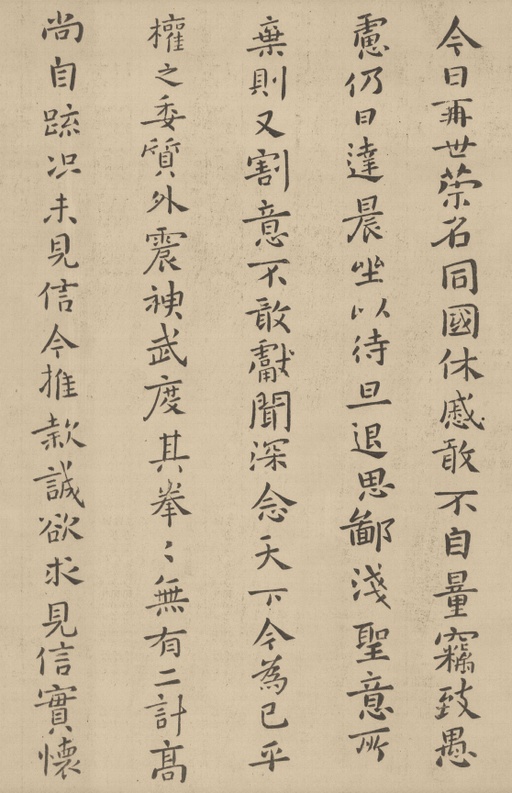 今日再世榮名同國休慼敢不自量竊致愚
慮仍日達晨坐以待旦退思鄙淺聖意所
棄則又割意不敢獻聞深念天下今為已平
權之委質外震神武度其拳〻無有二計高
尚自疏况未見信今推款誠欲求見信實懷